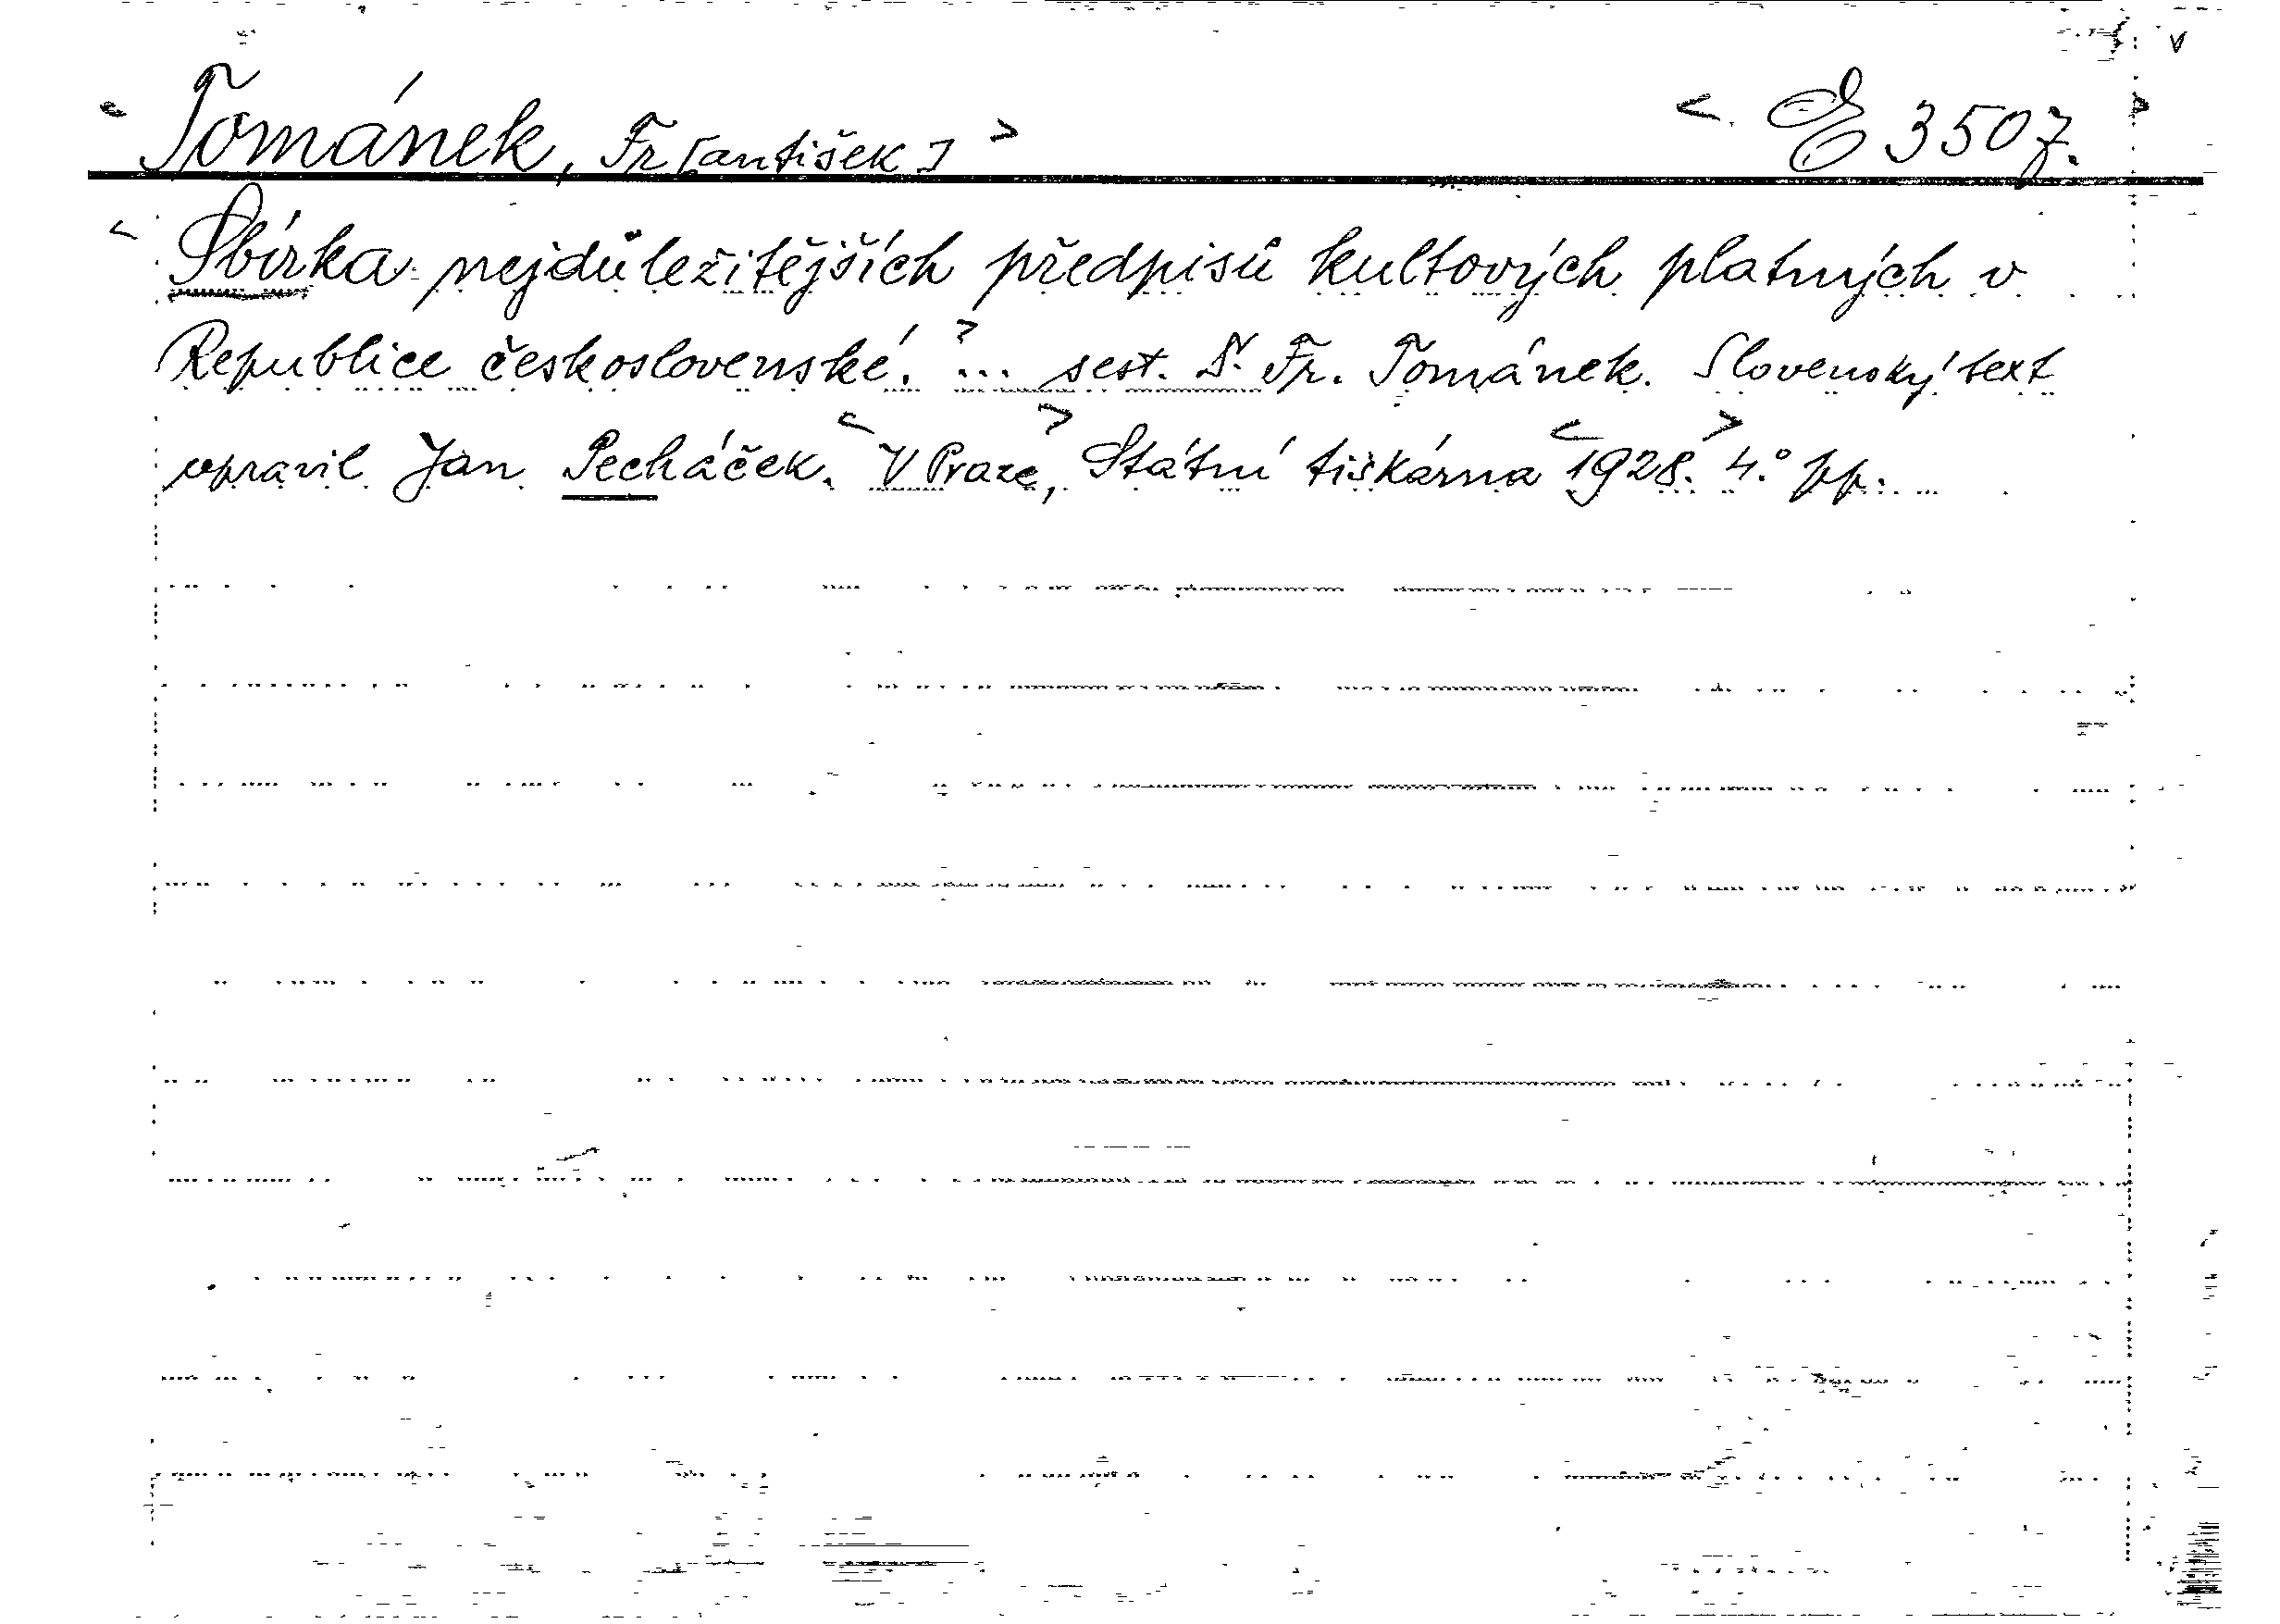 < Tománek, Fr[antišek] > < E 3507. >
< Sbírka nejdůležitějších předpisů kultových platných v
Republice československé. > ... sest. Dr. Fr. Tománek. Slovenský text
upravil Jan Pecháček. < V Praze, > Státní tiskárna < 1928. > 4.° pp.